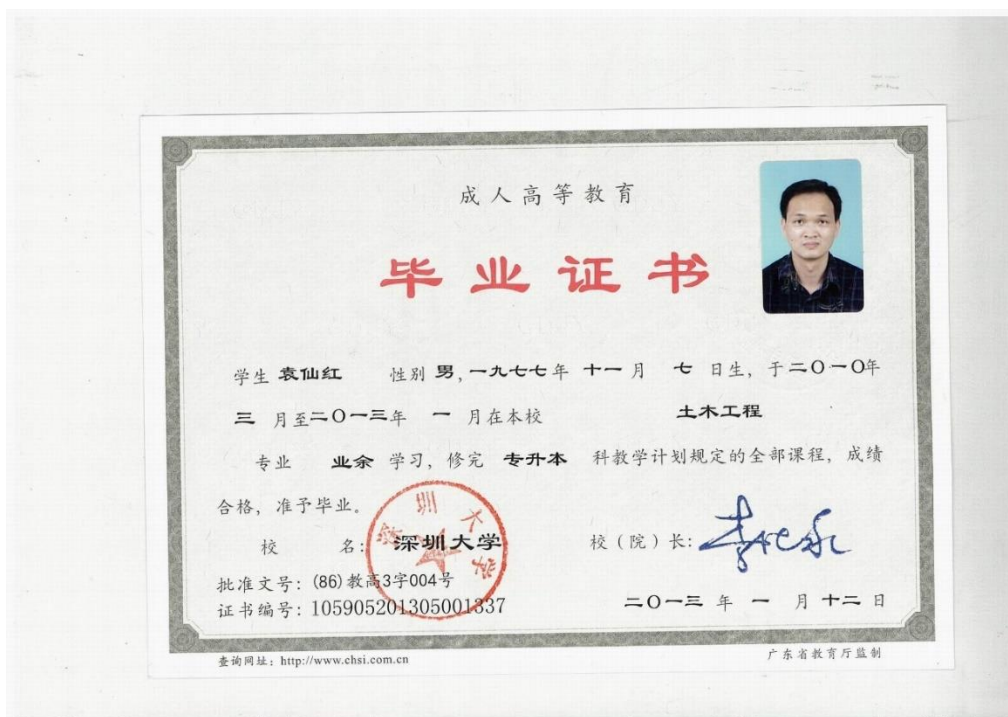 成人高等教育
毕业证书
学生 袁仙红 性别 男,一九七七年 十一月 七 日生,于二〇一〇年
三 月至二〇一三年 一 月在本校 土木工程
专业 业余 学习,修完 专升本 科教学计划规定的全部课程,成绩
合格,准予毕业。
校 名:深圳大学 校(院)长:
深圳大学
批准文号:(86)教高3字004号
证书编号:105905201305001337 二〇一三 年 一 月 十二 日
查询网址:http://www.chsi.com.cn 广东省教育厅监制